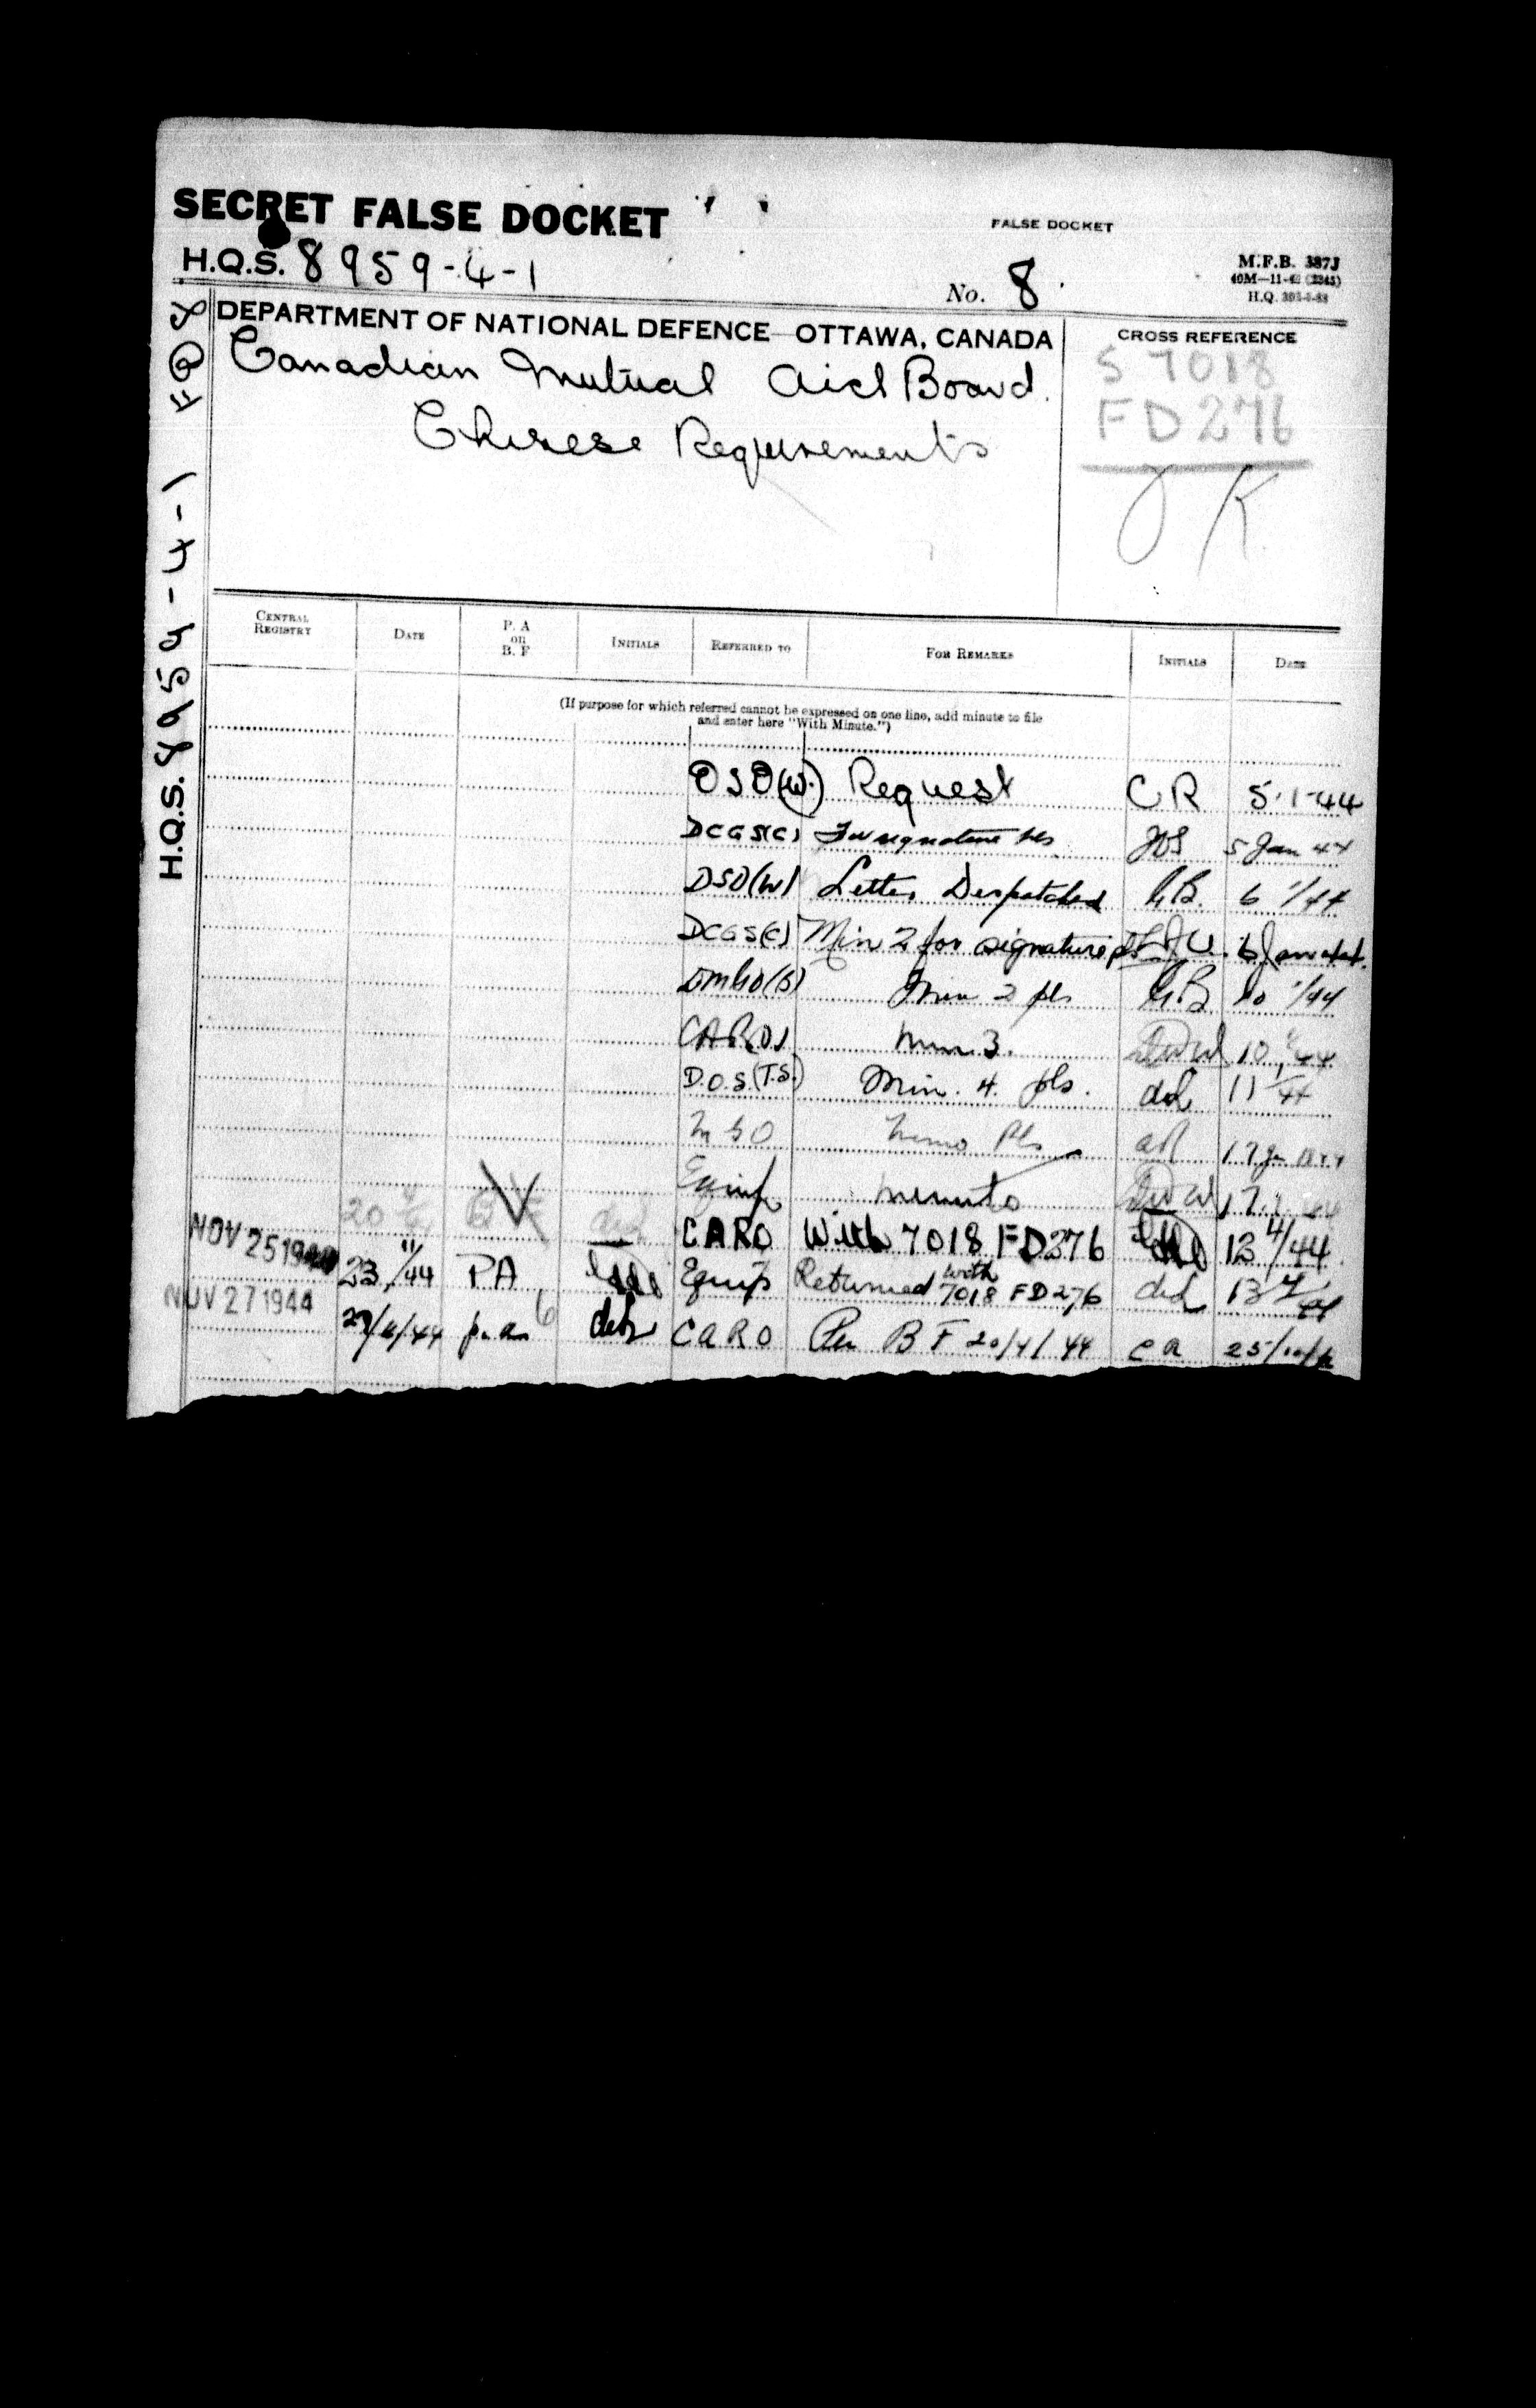 SECRET FALSE DOCKET
FALSE DOCKET
H.Q.S. 8959-4-1
No. 8
M.F.B. 387J
40M—11-42 (2345)
H.Q.
DEPARTMENT OF NATIONAL DEFENCE—OTTAWA, CANADA
CROSS REFERENCE
Canadian Mutual Aid Board.
Chinese Requirements
S 7018
FD 276
OK
H.Q.S. 8959-4-1 FD 8
CENTRAL REGISTRY DATE P. A OR B. F INITIALS REFERRED TO FOR REMARKS INITIALS DATE
(If purpose for which referred cannot be expressed on one line, add minute to file
and enter here "With Minute.")
DSD(W.) Request CR 5-1-44
DCGS(C) For signature pls 5 Jan 44
DSD(W) Letter Despatched G.B. 6 1/44
DCGS(C) Min 2 for signature pls 6 Jan 44.
Min 2 pls G.B 10 1/44
CARO Min 3. 10 1/44
D.O.S.(T.S.) Min. 4. pls. deh 11 1/44
MGO Memo Pls 17 Jan 1944
20 4/44 BF deh Equip 17.1.44
NOV 25 1944 23 11/44 PA CARO With 7018 FD276 13 4/44
NOV 27 1944 Equip Returned with 7018 FD 276 deh 13 4/44
27/11/44 p.a. 6 deh CARO Per BF 20/4/44 25/10/44